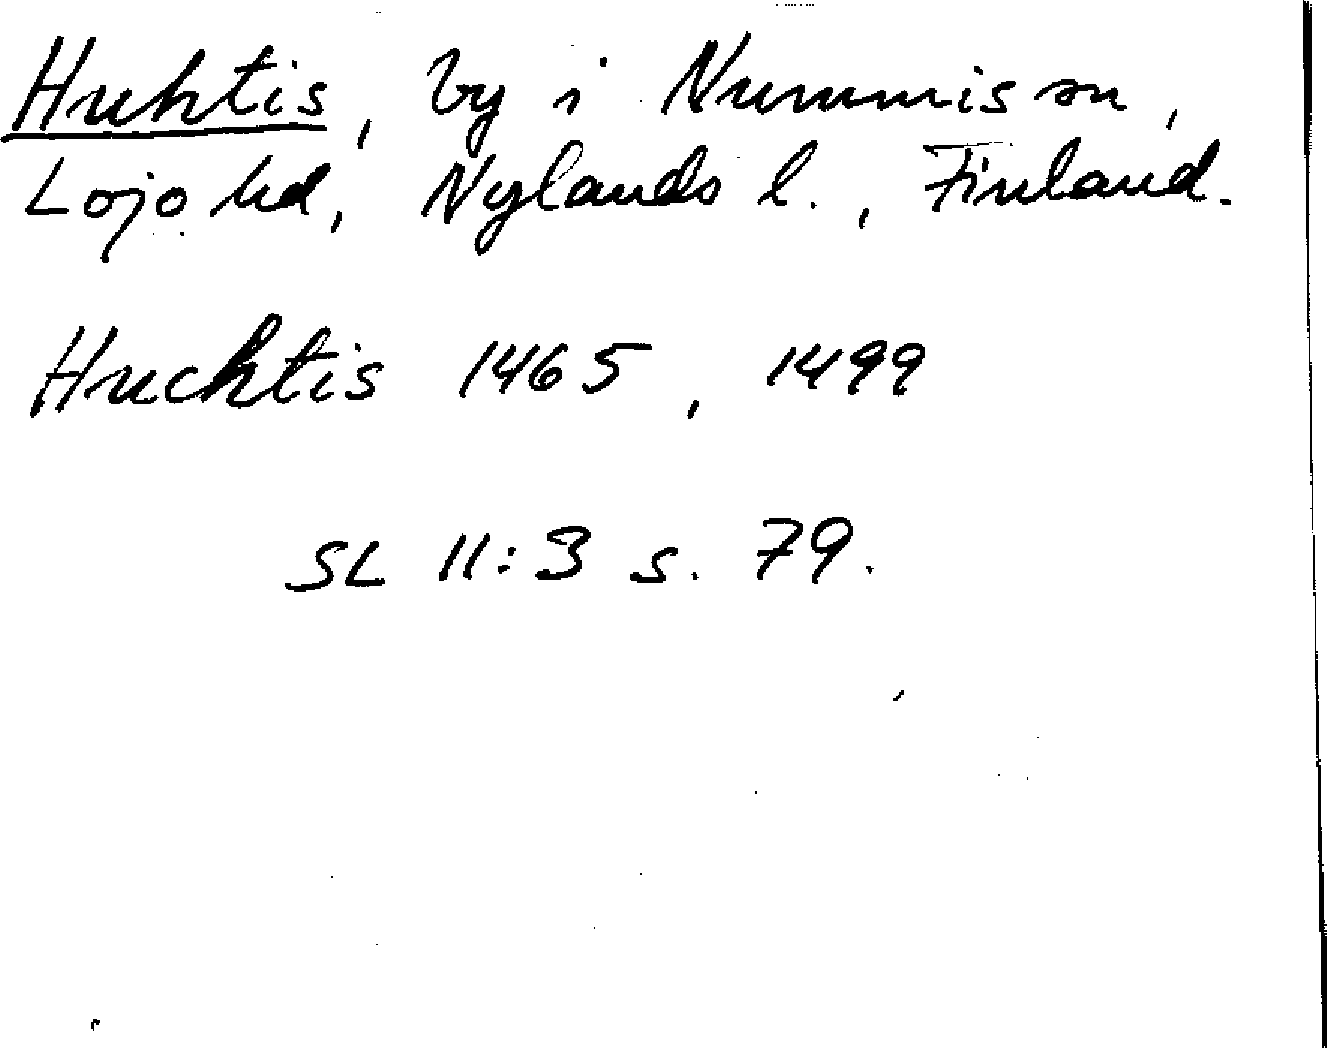 Huhtis, by i Nummis sn,
Lojo hd, Nylands l., Finland.
Huchtis 1465, 1499
SL 11:3 s. 79.